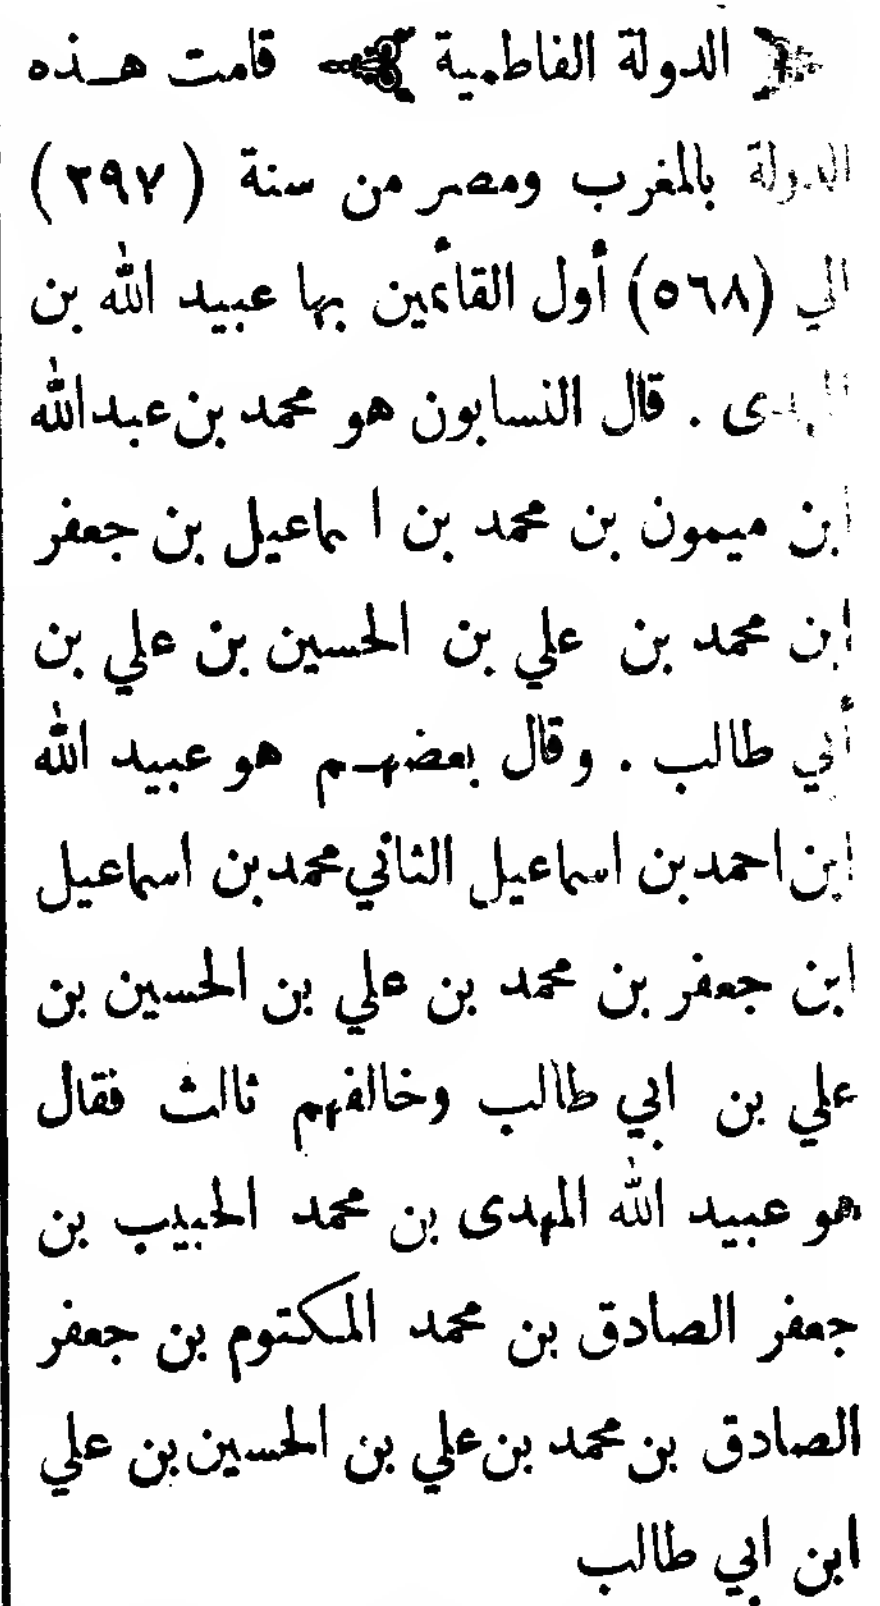 ﴿ الدولة الفاطمية ﴾ قامت هـذه
الدولة بالمغرب ومصر من سنة ( ٢٩٧ )
الي (٥٦٨) أول القائمين بها عبيد الله بن
المهدى . قال النسابون هو محمد بن عبدالله
ابن ميمون بن محمد بن اسماعيل بن جعفر
ابن محمد بن علي بن الحسين بن علي بن
أبي طالب . وقال بعضهـم هو عبيد الله
ابن احمد بن اسماعيل الثاني محمد بن اسماعيل
ابن جعفر بن محمد بن علي بن الحسين بن
علي بن ابي طالب وخالفهم ثالث فقال
هو عبيد الله المهدى بن محمد الحبيب بن
جعفر الصادق بن محمد المكتوم بن جعفر
الصادق بن محمد بن علي بن الحسين بن علي
ابن ابي طالب